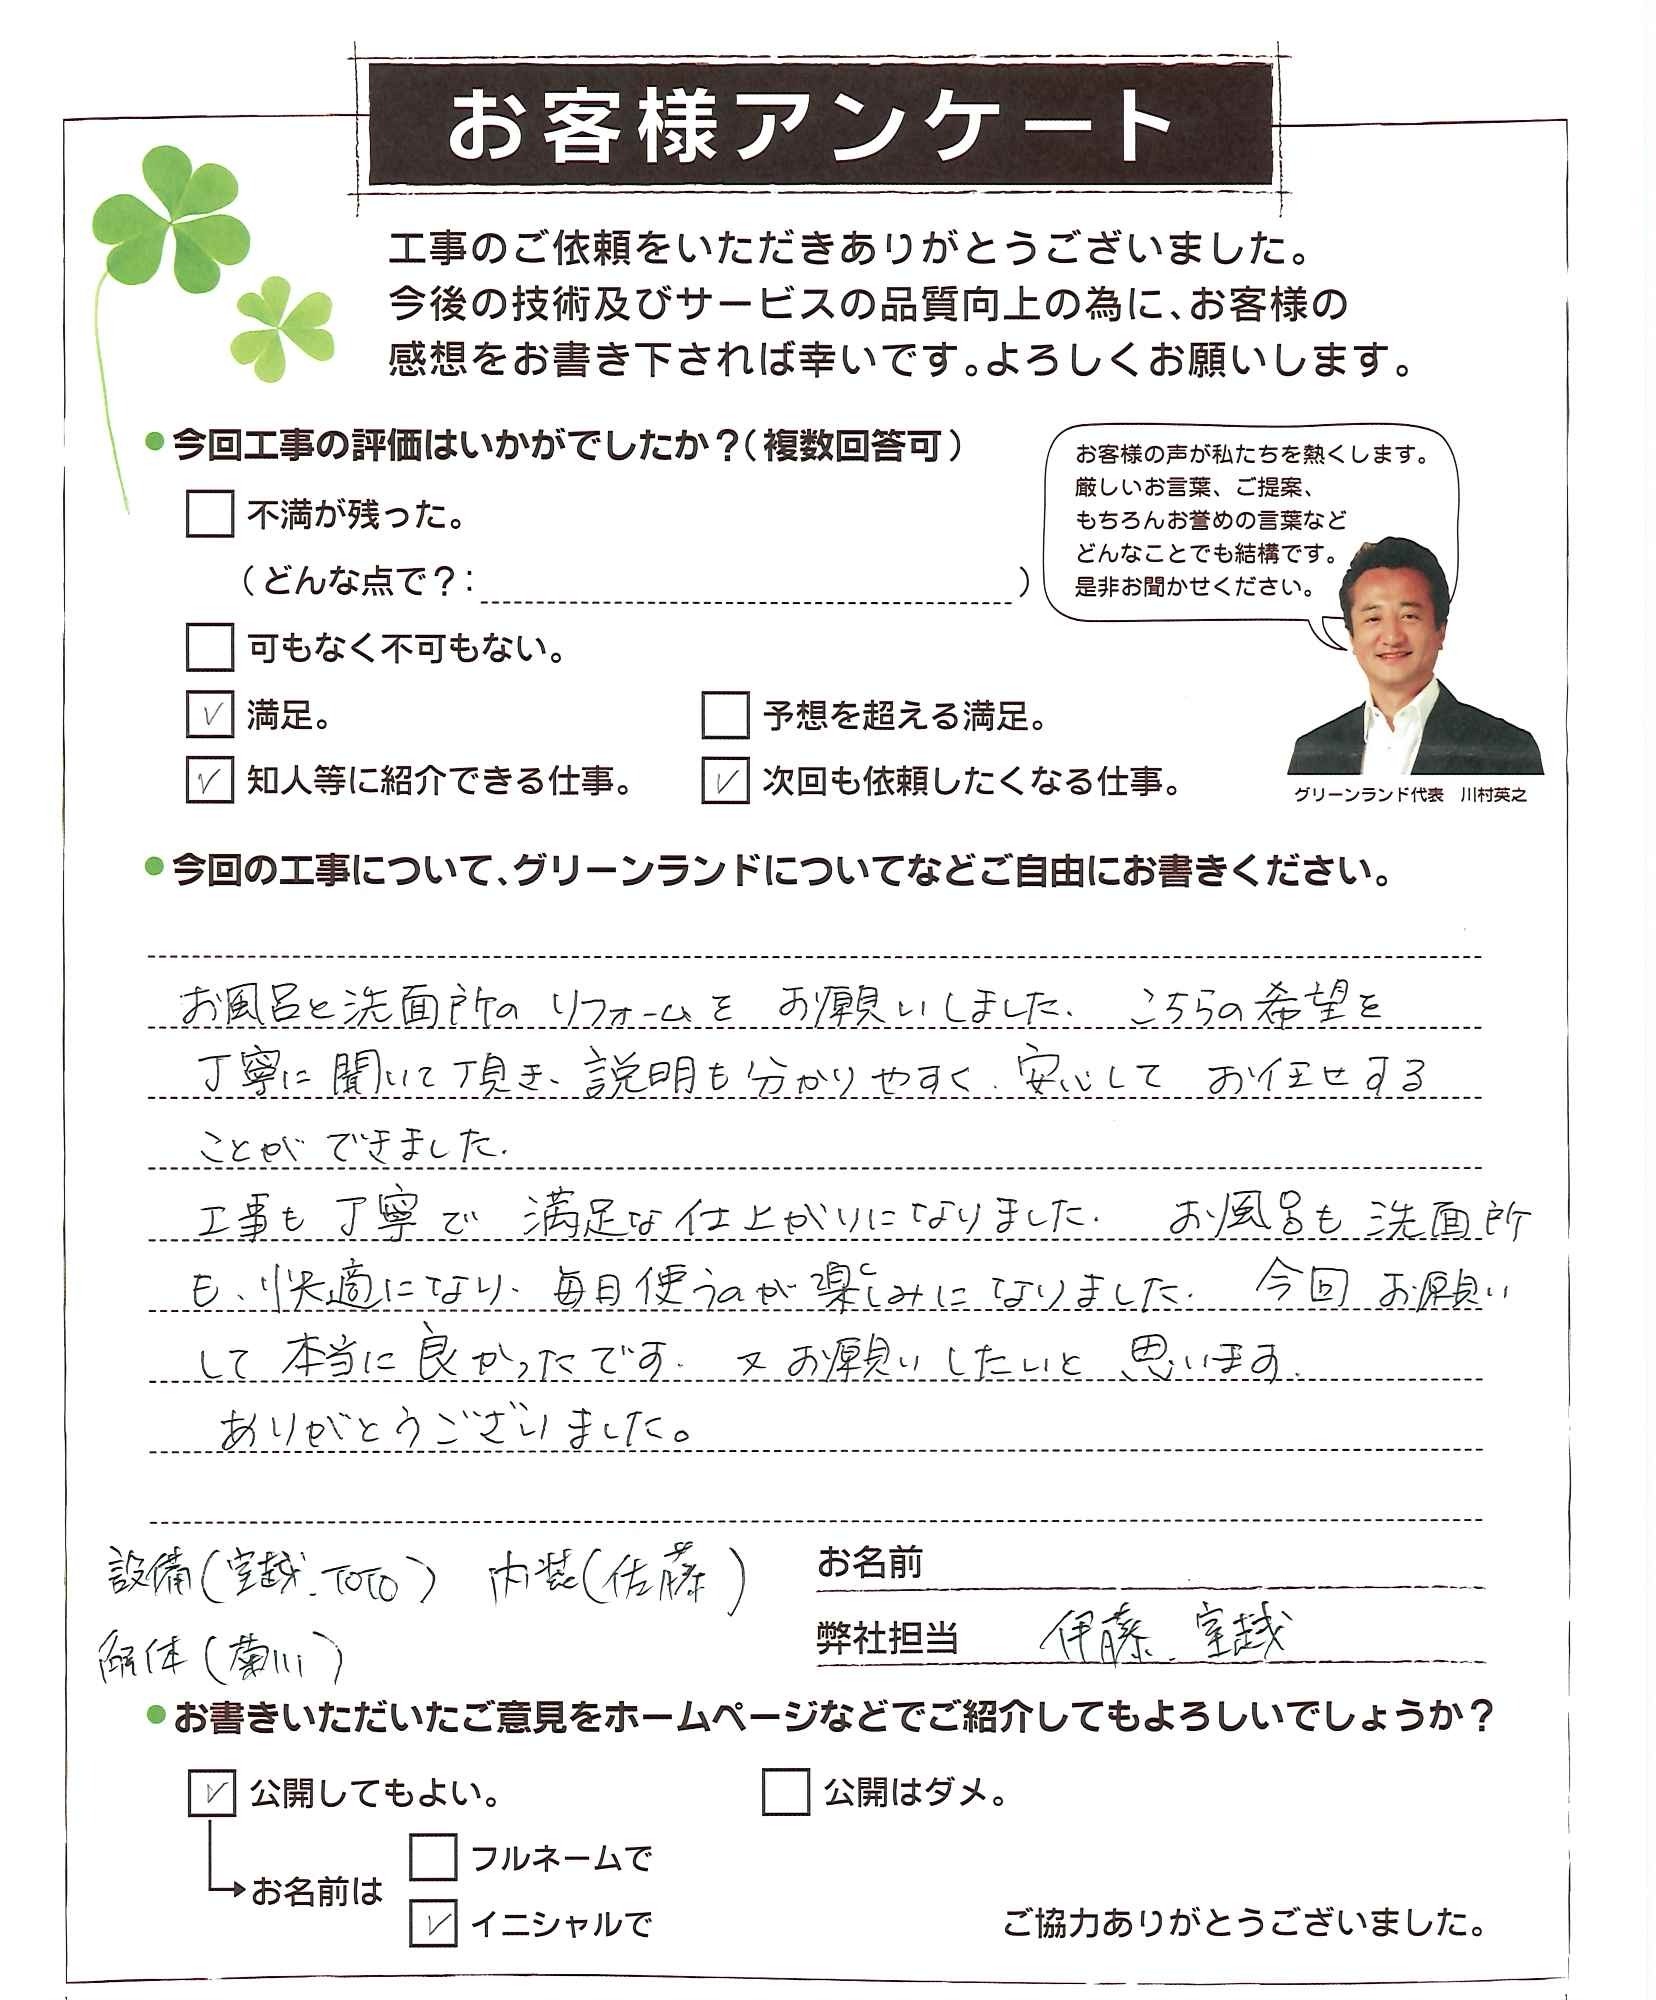 お客様アンケート
工事のご依頼をいただきありがとうございました。
今後の技術及びサービスの品質向上の為に、お客様の
感想をお書き下されば幸いです。よろしくお願いします。
●今回工事の評価はいかがでしたか？（複数回答可）
□ 不満が残った。
（どんな点で？： ）
□ 可もなく不可もない。
☑ 満足。 □ 予想を超える満足。
☑ 知人等に紹介できる仕事。 ☑ 次回も依頼したくなる仕事。
お客様の声が私たちを熱くします。
厳しいお言葉、ご提案、
もちろんお誉めの言葉など
どんなことでも結構です。
是非お聞かせください。
グリーンランド代表 川村英之
●今回の工事について、グリーンランドについてなどご自由にお書きください。
お風呂と洗面所の リフォームを お願いしました. こちらの希望を
丁寧に聞いて頂き、説明も分かりやすく、安心して お任せする
ことが できました.
工事も 丁寧で 満足な仕上がりになりました. お風呂も 洗面所
も、快適になり、毎日使うのが楽しみになりました. 今回 お願い
して 本当に良かったです. 又お願いしたいと 思います.
ありがとうございました。
設備（室越、TOTO） 内装（佐藤）
解体（菊川）
お名前
弊社担当 伊藤、室越
●お書きいただいたご意見をホームページなどでご紹介してもよろしいでしょうか？
☑ 公開してもよい。 □ 公開はダメ。
お名前は
□ フルネームで
☑ イニシャルで
ご協力ありがとうございました。